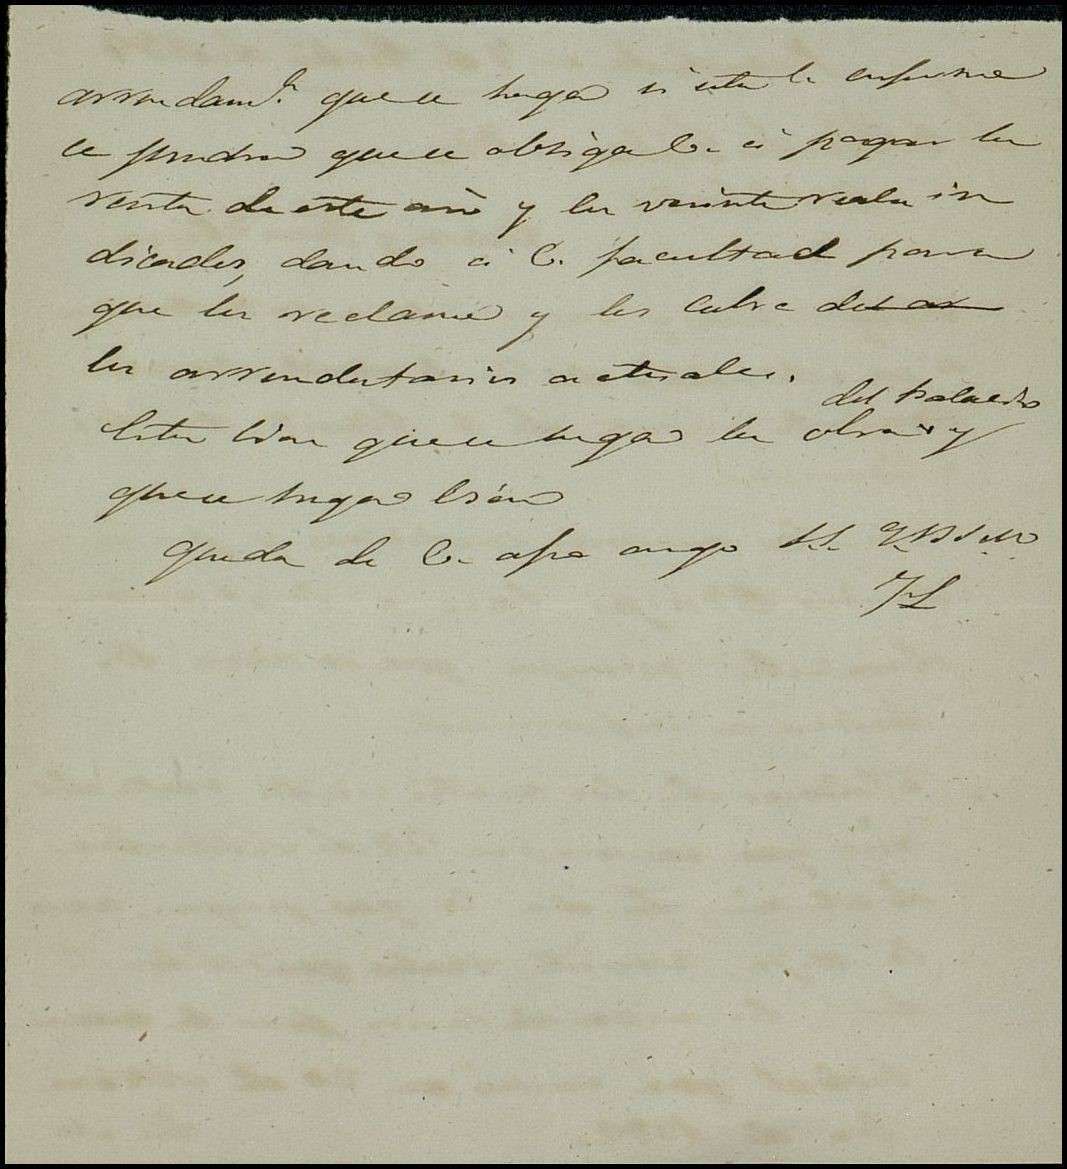 arrendam.to que se haga si esta conforme
se pondra que se obliga V. á pagar la
renta de este año y los veinte reales in
dicados, dando á V. facultad para
que los reclame y los cobre de los
los arrendatarios actuales.
del Palacio
Esta bien que se hagan las obras y
que se hagan bien
Queda de V. afmo amigo S.S. Q.B.S.M.
JL